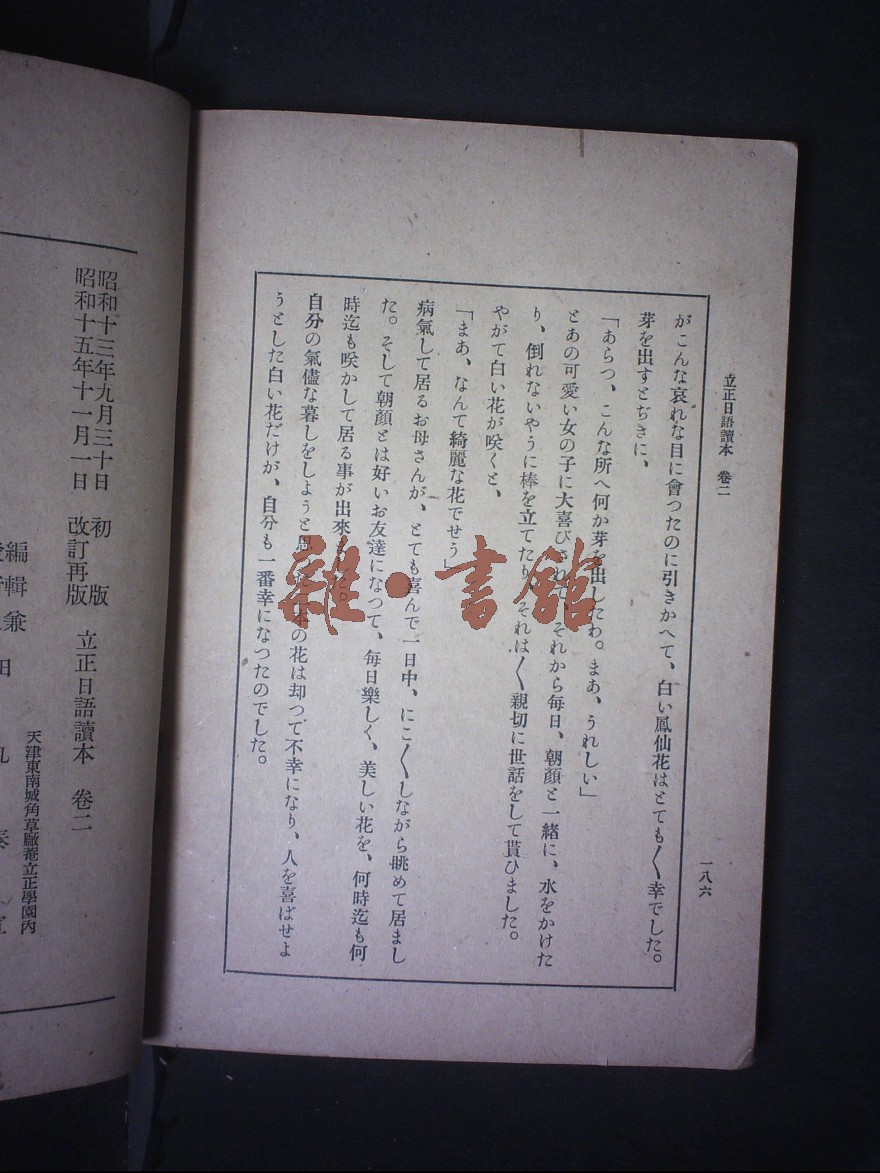 立正日語讀本 卷二
一八六
がこんな哀れな目に會つたのに引きかへて、白い鳳仙花はとても〱幸でした。
芽を出すとぢきに、
「あらつ、こんな所へ何か芽を出したわ。まあ、うれしい」
とあの可愛い女の子に大喜びされて、それから每日、朝顏と一緒に、水をかけた
り、倒れないやうに棒を立てたり、それは〱親切に世話をして貰ひました。
やがて白い花が咲くと、
「まあ、なんて綺麗な花でせう」
病氣して居るお母さんが、とても喜んで一日中、にこ〱しながら眺めて居まし
た。そして朝顏とは好いお友達になつて、每日樂しく、美しい花を、何時迄も何
時迄も咲かして居る事が出來ました。
自分の氣儘な暮しをしようと思の花は却つて不幸になり、人を喜ばせよ
うとした白い花だけが、自分も一番幸になつたのでした。
雜·書館
昭和十三年九月三十日 初版
昭和十五年十一月一日 改訂再版
立正日語讀本 卷二
天津東南城角草廠菴立正學園內
編輯兼